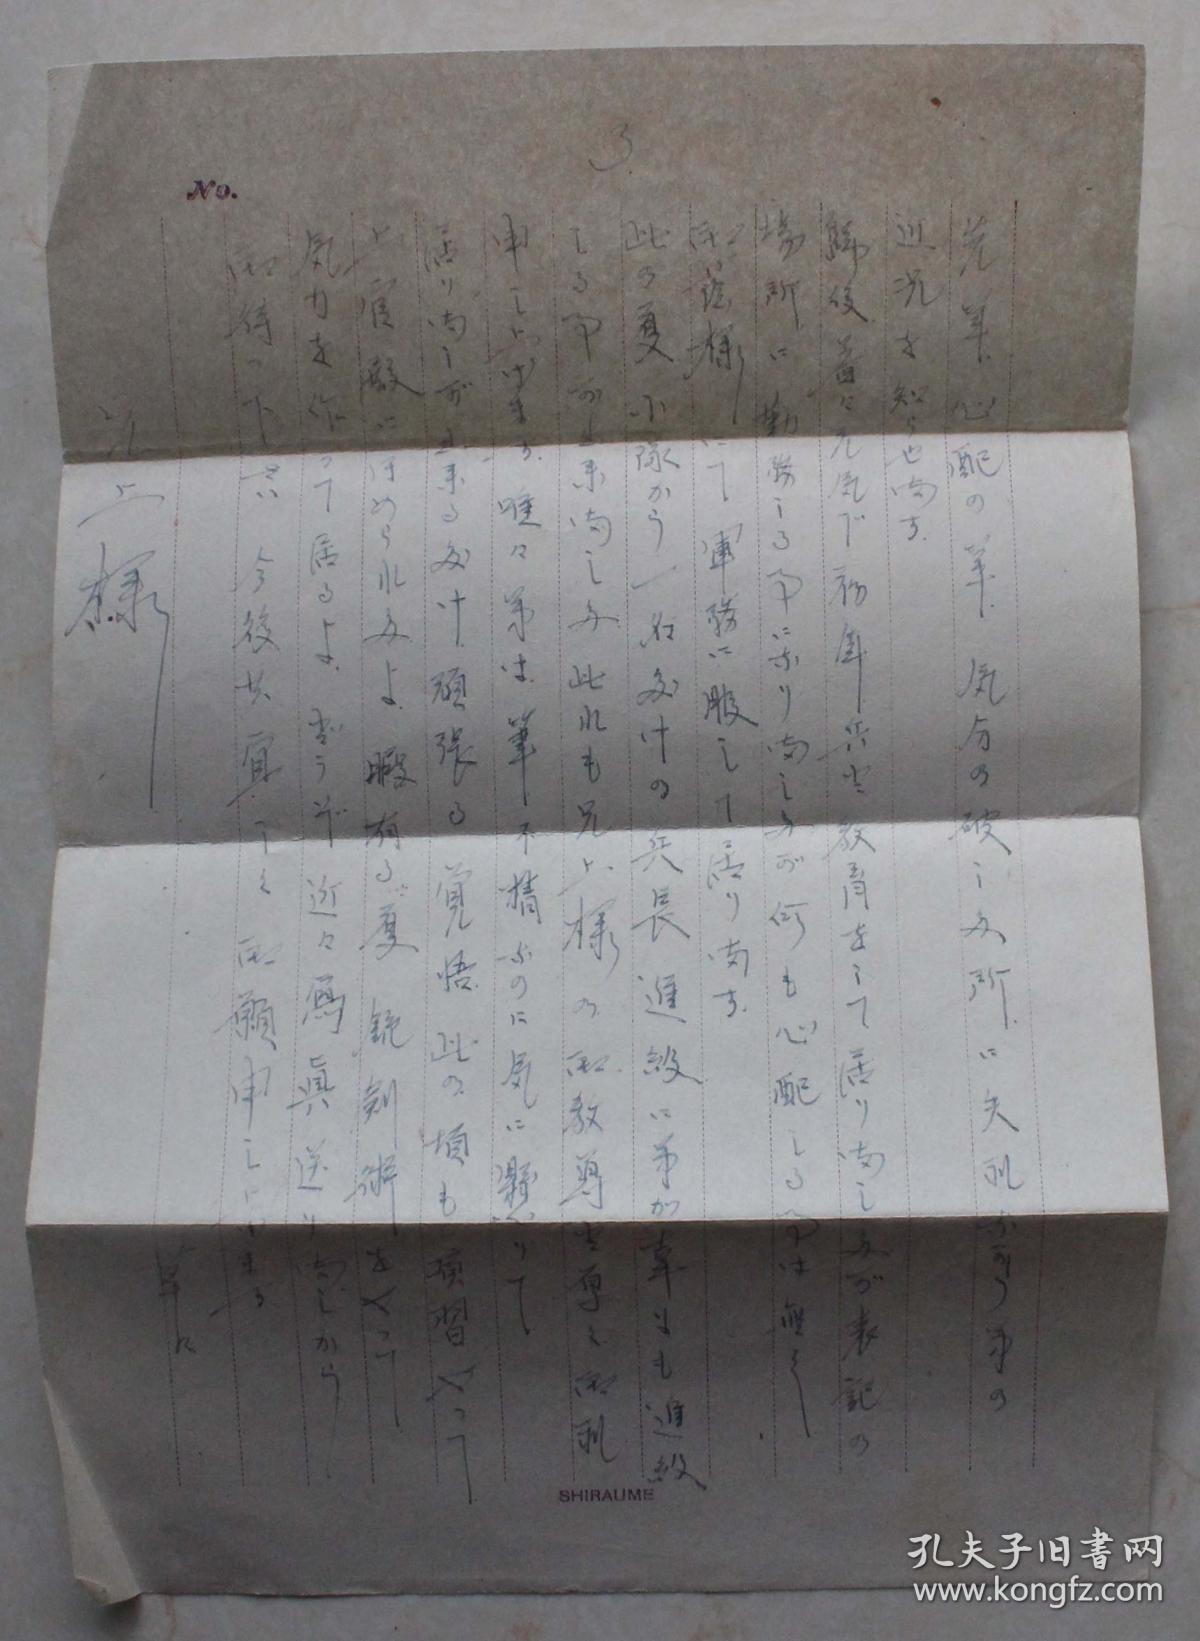 3
No.
先ず 心配の 気分の破した所に失礼ながら弟の
近況を知らせます。
帰後益々元気で初年兵の教育をして居りましたが表記の
場所に勤務する事になりましたが何も心配する事は無く
御蔭様にて軍務に服して居ります。
此の度 小隊から一名だけの兵長進級に弟が幸にも進級
する事が出来ました此れも兄上様の御教導と厚く御礼
申し上げます。唯々弟は筆不精なのに気に懸かりて
居りますが出来るだけ頑張る覚悟 此の頃も演習やって
上官殿にほめられたよ、暇有る度 銃剣術をやって
気力を作って居るよ、どうぞ近々写眞送りますから
御待ち下さい 今後共宜しく御願申し上げます
草々
兄上様
SHIRAUME
孔夫子旧書网
www.kongfz.com